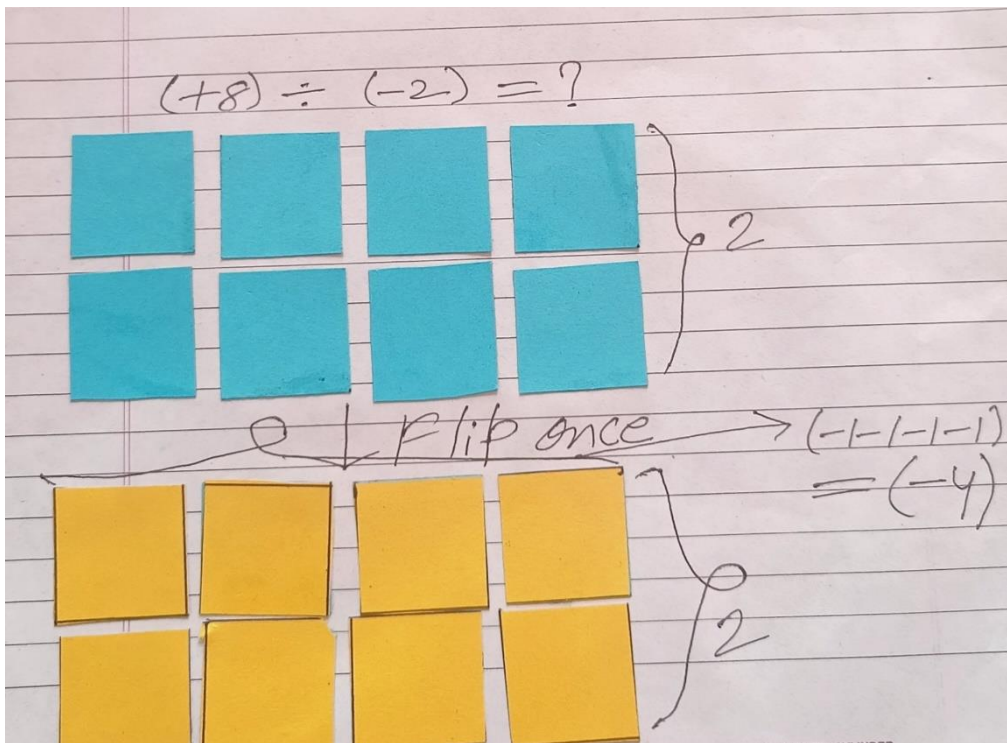 (+8) ÷ (-2) = ?
2
Flip once
(-1-1-1-1)
= (-4)
2